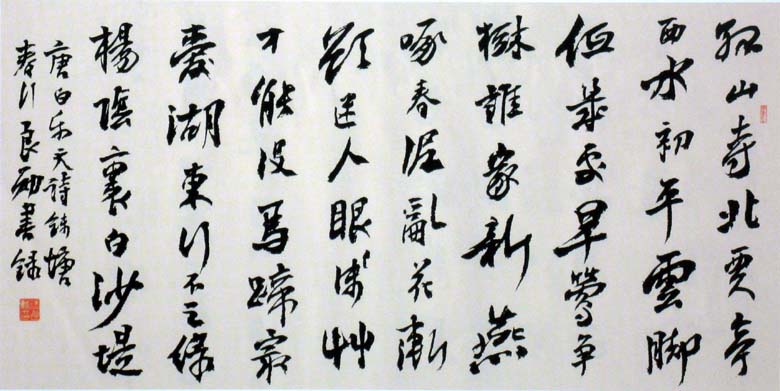 孤山寺北賈亭
西水初平雲脚
低幾處早鶯争
樹誰家新燕
啄春泥亂花漸
欲迷人眼淺艸
才能没馬蹄最
愛湖東行不足綠
楊陰裏白沙堤
唐白乐天詩錢塘
春行 良書録